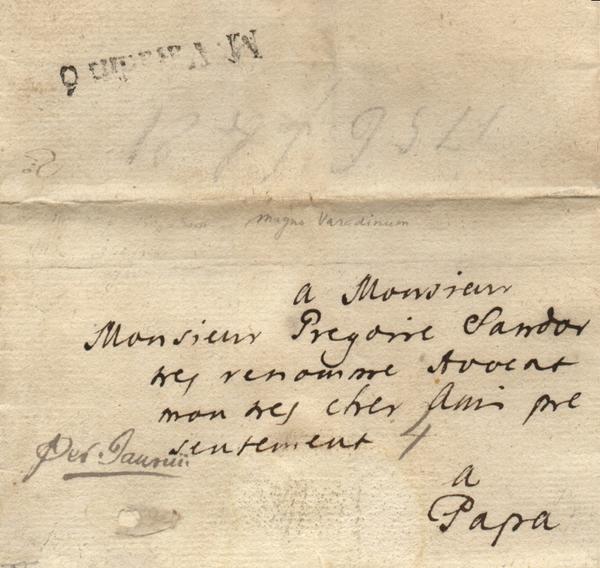 M. Varadin 6
Magno Varadinum
a Monsieur
Monsieur Gregoire Sandor
tres renomme Avocat
mon tres cher Ami pre
sentement 4
Per Jaurin
a
Papa